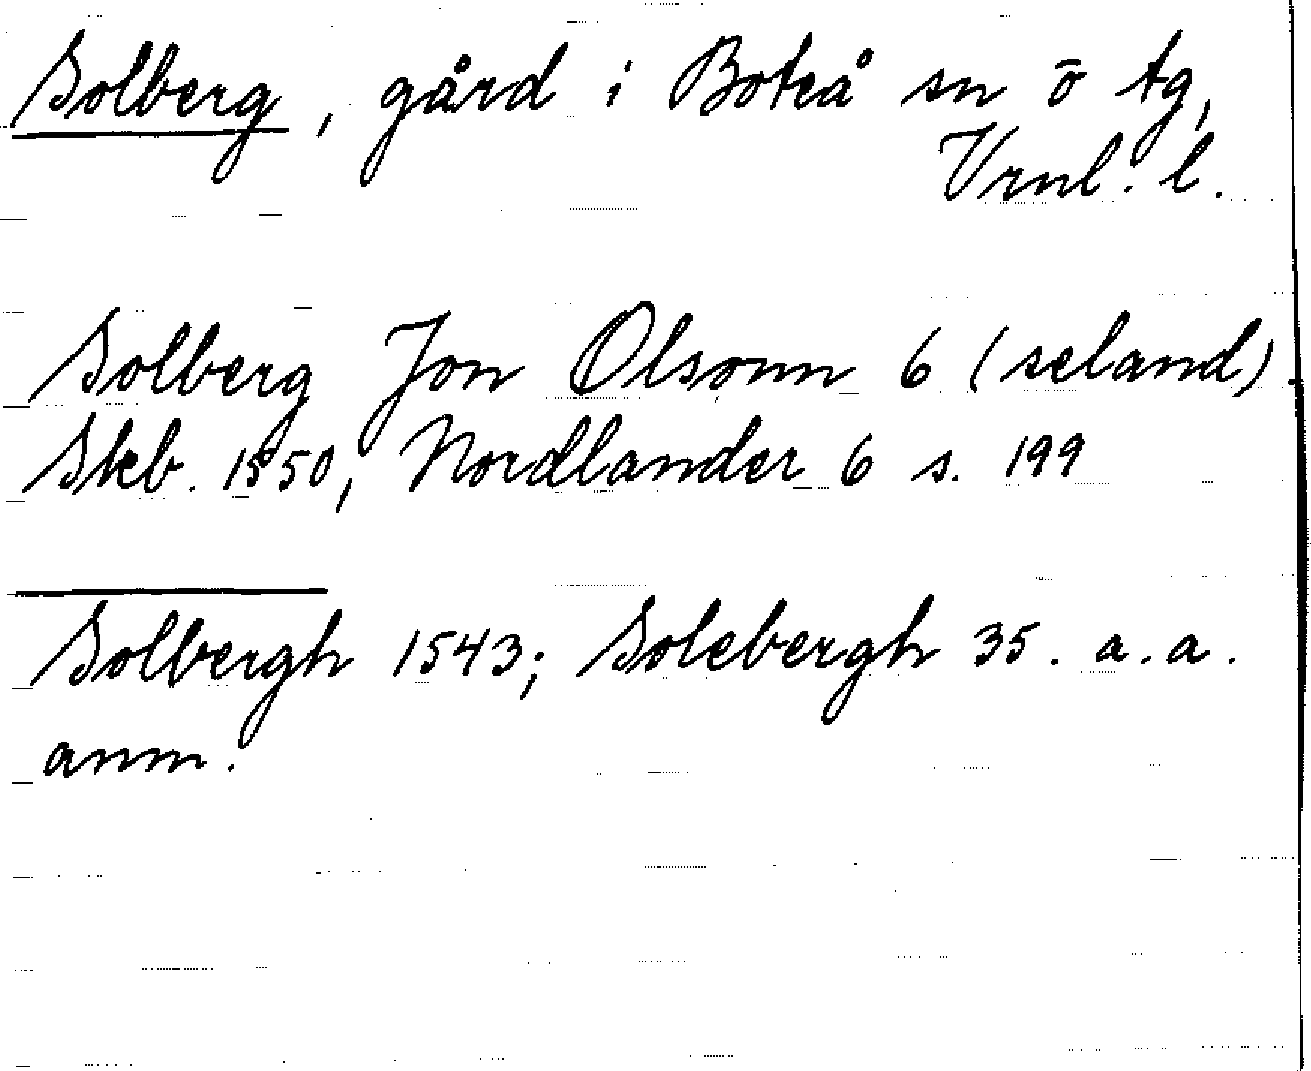 Solberg, gård i Boteå sn ō tg,
Vrnl. l.
Solberg Jon Olsonn 6 (seland)
Skb. 1550, Nordlander 6 s. 199
Solbergh 1543; Solebergh 35. a.a.
anm.